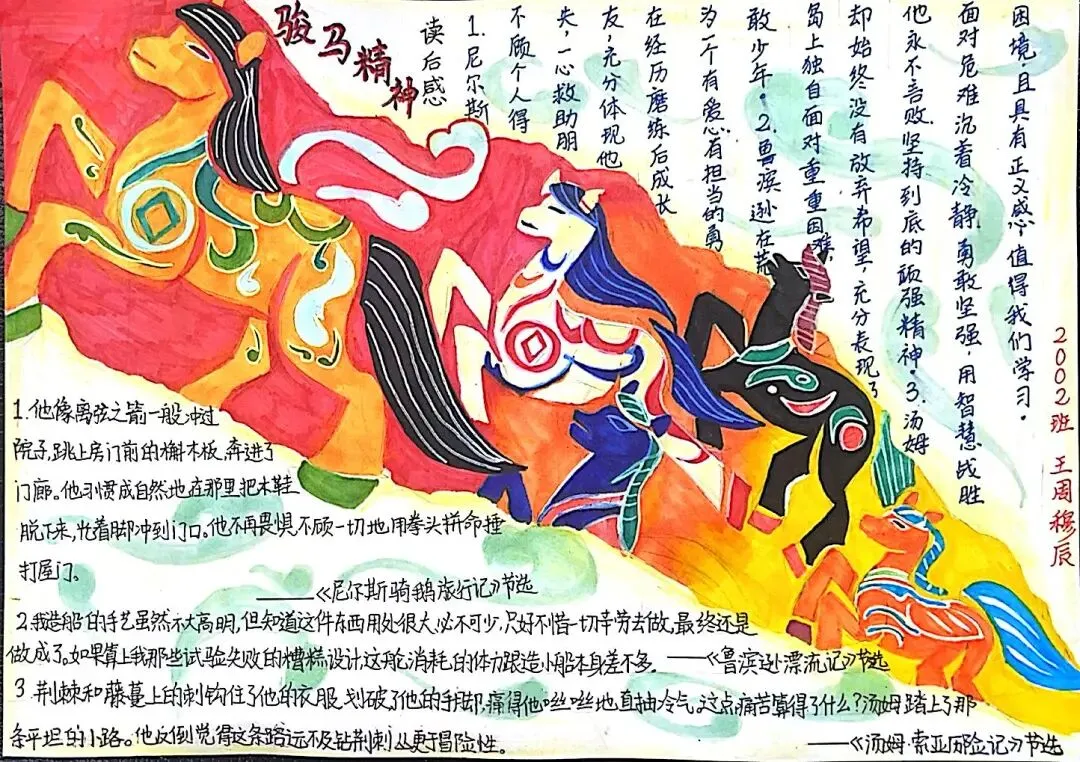 骏马精神
读后感
1.尼尔斯
不顾个人得
失,一心救助朋
友,充分体现他
在经历磨练后成长
为一个有爱心有担当的勇
敢少年。2.鲁滨逊在荒
岛上独自面对重重困难,
却始终没有放弃希望,充分表现了
他永不言败,坚持到底的顽强精神。3.汤姆
面对危难沉着冷静,勇敢坚强,用智慧战胜
困境,且具有正义感,值得我们学习。
2002班 王周穆辰
1.他像离弦之箭一般冲过
院子,跳上房门前的槲木板,奔进了
门廊。他习惯成自然地在那里把木鞋
脱下来,光着脚冲到门口。他不再畏惧,不顾一切地用拳头拼命捶
打屋门。
——《尼尔斯骑鹅旅行记》节选
2.我造船的手艺虽然不大高明,但知道这件东西用处很大,必不可少,只好不惜一切辛劳去做,最终还是
做成了。如果算上我那些试验失败的糟糕设计,这舵消耗的体力跟造小船本身差不多。——《鲁滨逊漂流记》节选
3.荆棘和藤蔓上的刺钩住了他的衣服,划破了他的手脚,痛得他咝咝地直抽冷气。这点痛苦算得了什么?汤姆踏上了那
条平坦的小路。他反倒觉得这条路远不及钻荆刺丛更于冒险性。
——《汤姆·索亚历险记》节选